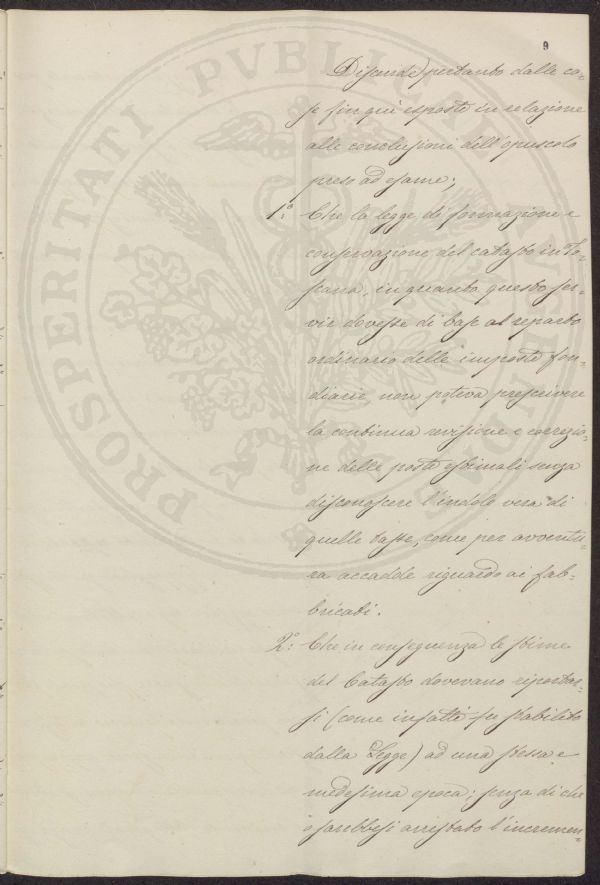 9
Discende pertanto dalle co-
se fin qui esposte in relazione
alle conclusioni dell'opuscolo
preso ad esame;
1.° Che la legge di formazione e
conservazione del catasto in To-
scana, in quanto questo ser-
vir dovesse di base al reparto
ordinario delle imposte fon-
diarie, non poteva prescrivere
la continua revisione e correzio-
ne delle poste estimali senza
disconoscere l'indole vera di
quelle tasse, come per avventu-
ra accadde riguardo ai fab-
bricati.
2.° Che in conseguenza le stime
del Catasto dovevano riportar-
si (come infatti fu stabilito
dalla Legge) ad una stessa e
medesima epoca; senza di che
o sarebbesi arrestato l'incremen-
PROSPERITATI PVBLICAE